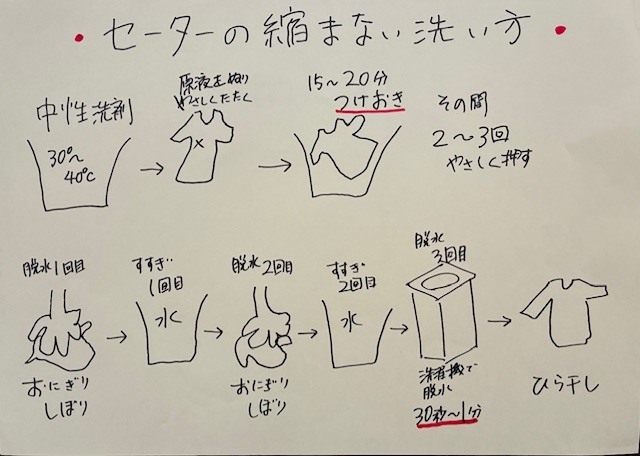 • セーターの縮まない洗い方 •
中性洗剤
30°〜
40℃
原液をぬり
やさしくたたく
×
15〜20分
つけおき
その間
2〜3回
やさしく押す
脱水1回目
おにぎり
しぼり
すすぎ
1回目
水
脱水2回目
おにぎり
しぼり
すすぎ
2回目
水
脱水
3回目
洗濯機で
脱水
30秒〜1分
ひら干し